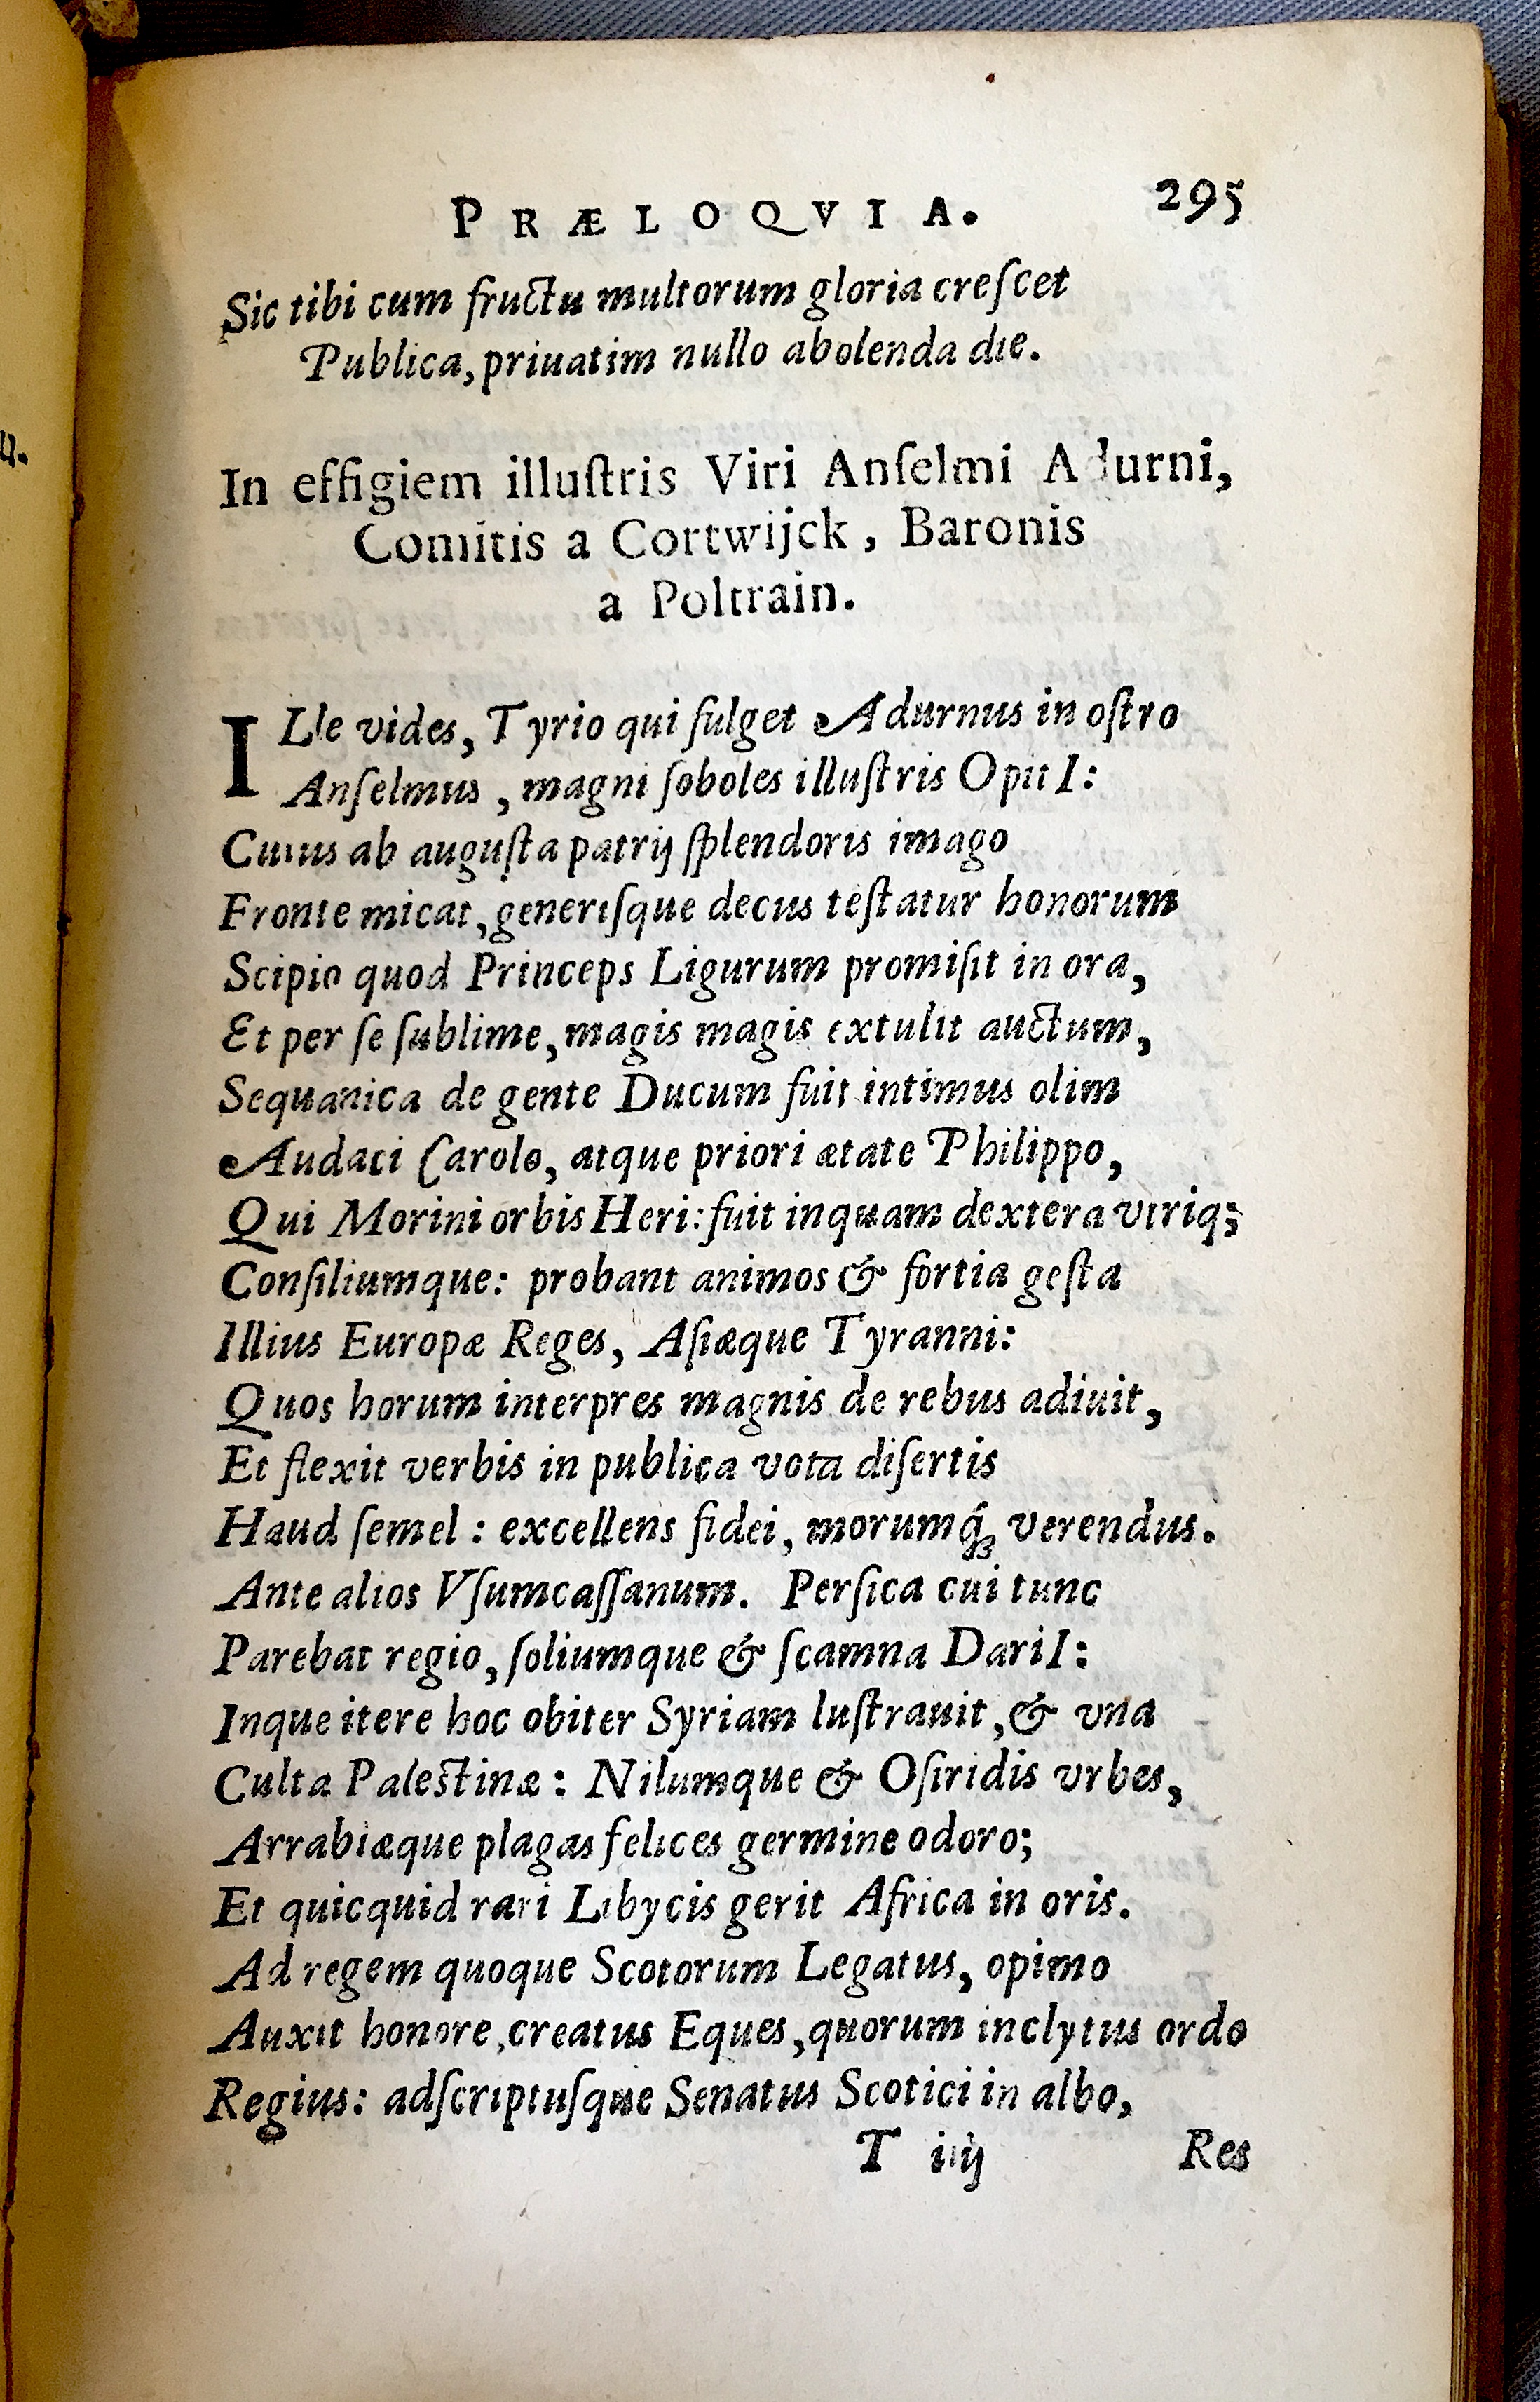 PRÆLOQVIA. 295
Sic tibi cum fructu multorum gloria creſcet
Publica, priuatim nullo abolenda die.
In effigiem illuſtris Viri Anſelmi Adurni,
Comitis a Cortwijck, Baronis
a Poltrain.
ILle vides, Tyrio qui fulget Adurnus in oſtro
Anſelmus, magni ſoboles illuſtris OpitI:
Cuius ab auguſta patrij ſplendoris imago
Fronte micat, generiſque decus teſtatur honorum
Scipio quod Princeps Ligurum promiſit in ora,
Et per ſe ſublime, magis magis extulit auctum,
Sequanica de gente Ducum fuit intimus olim
Audaci Carolo, atque priori ætate Philippo,
Qui Morini orbis Heri: fuit inquam dextera vtriq;
Conſiliumque: probant animos & fortia geſta
Illius Europæ Reges, Aſiæque Tyranni:
Quos horum interpres magnis de rebus adiuit,
Et flexit verbis in publica vota diſertis
Haud ſemel: excellens fidei, morumq́; verendus.
Ante alios Vſumcaſſanum. Perſica cui tunc
Parebat regio, ſoliumque & ſcamna DariI:
Inque itere hoc obiter Syriam luſtrauit, & vna
Culta Paleſtinæ: Nilumque & Oſiridis vrbes,
Arrabiæque plagas felices germine odoro;
Et quicquid rari Libycis gerit Africa in oris.
Ad regem quoque Scotorum Legatus, opimo
Auxit honore, creatus Eques, quorum inclytus ordo
Regius: adſcriptuſque Senatus Scotici in albo,
T iiij Res